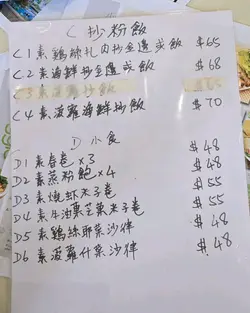 C 炒粉飯
C1 素鷄絲扎肉炒金邊或飯 $65
C2 素海鮮炒金邊或飯 $68
C3 素菠蘿炒飯
C4 素菠蘿海鮮炒飯 $70
D 小食
D1 素春卷×3 $48
D2 素蒸粉飽×4 $68
D3 素燒虾夹子卷 $55
D4 素牛油果芝菓夹子卷 $55
D5 素鷄絲椰菜沙律 $48
D6 素菠蘿什菜沙律 $48